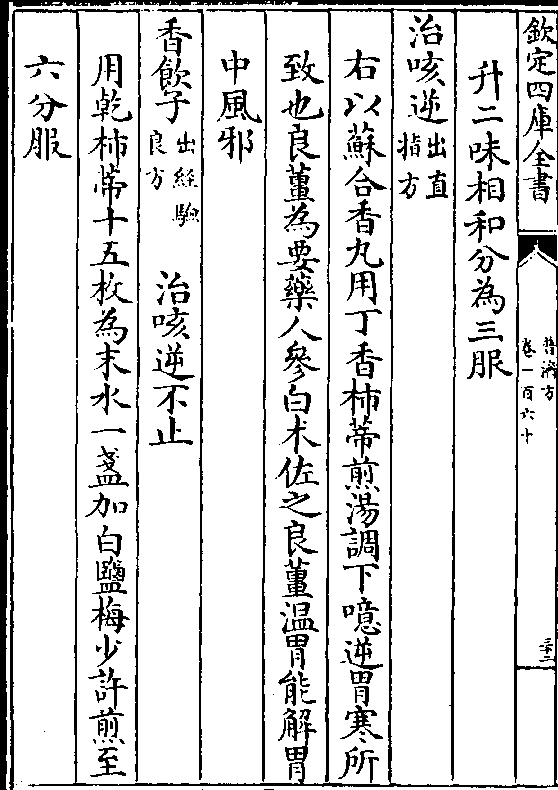 欽定四庫全書
普濟方
卷一百六十
三十二
升二味相和分為三服
治咳逆出直指方
右以蘇合香丸用丁香柿蒂煎湯調下噫逆胃寒所
致也良薑為要藥人參白术佐之良薑溫胃能解胃
中風邪
香飲子出經驗良方 治咳逆不止
用乾柿蒂十五枚為末水一盞加白鹽梅少許煎至
六分服